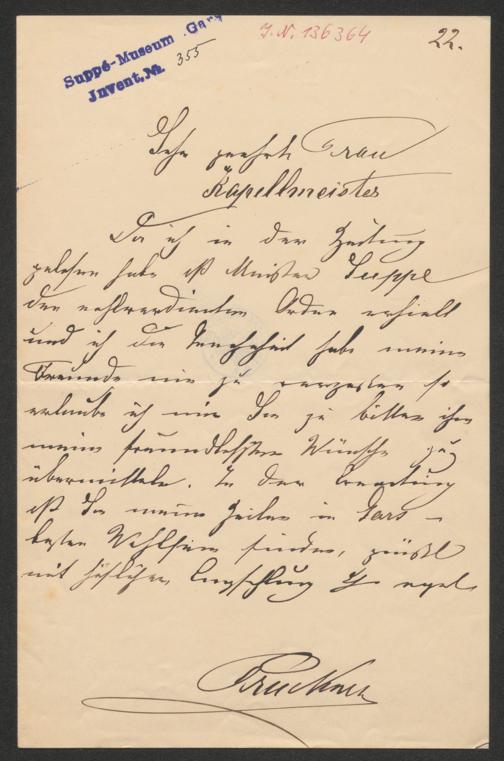 Suppé-Museum Gars
Invent. No. 355
J. N. 136364
22.
Sehr geehrte Frau
Kapellmeister
Da ich in der Zeitung
gelesen habe daß Meister Suppé
den wohlverdienten Orden erhielt
und ich die Gewohnheit habe meine
Freunde nie zu vergessen so
erlaube ich mir Sie zu bitten ihm
meine freundlichsten Wünsche zu
übermitteln. In der
daß Sie meine Zeilen in Gars
besten Wohlsein finden, grüßt
mit höflicher Empfehlung